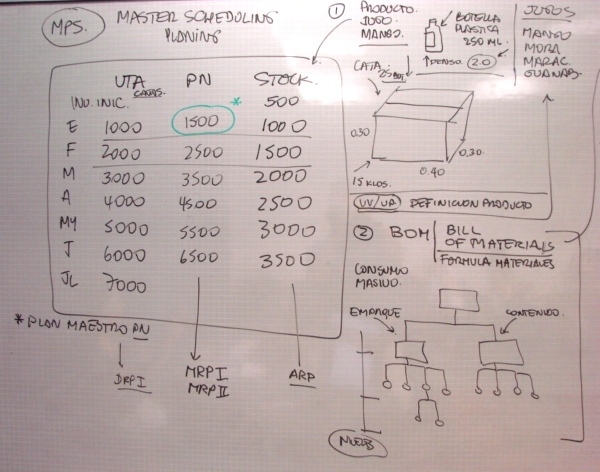 MPS.
MASTER SCHEDULING
PLANING
UTA CAJAS. PN STOCK.
INV. INIC. * 500
E 1000 1500 1000
F 2000 2500 1500
M 3000 3500 2000
A 4000 4500 2500
MY 5000 5500 3000
J 6000 6500 3500
JL 7000
* PLAN MAESTRO PN
DRP I
MRP I
MRP II
ARP
1 PRODUCTO.
JUGO
MANGO.
BOTELLA
PLASTICA
250 ML.
2.0
JUGOS
MANGO
MORA
MARAC.
GUANAB.
CAJA.
0.30
0.30.
0.40
15 KILOS.
UV/UA DEFINICION PRODUCTO
2 BOM BILL
OF MATERIALS
FORMULA MATERIALES
CONSUMO
MASIVO.
EMPAQUE
CONTENIDO.